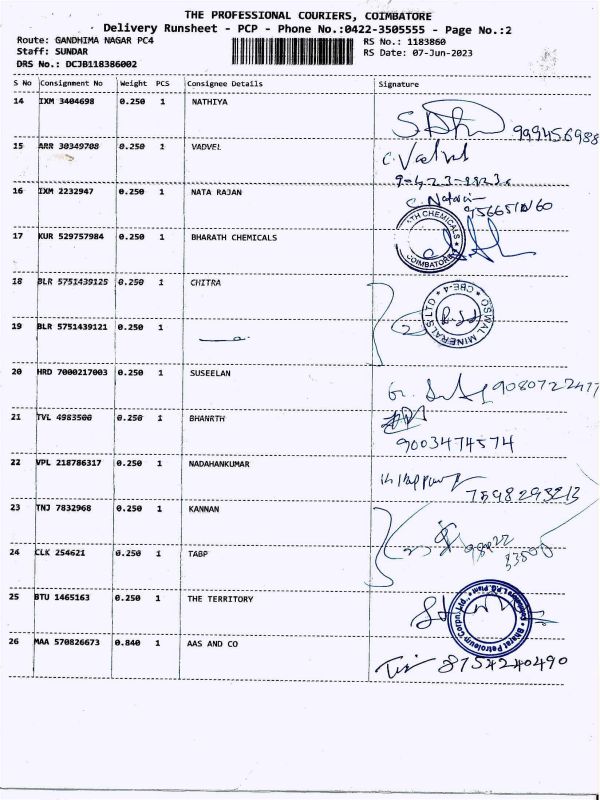 THE PROFESSIONAL COURIERS, COIMBATORE
Delivery Runsheet - PCP - Phone No.:0422-3505555 - Page No.:2
Route: GANDHIMA NAGAR PC4 RS No.: 1183860
Staff: SUNDAR RS Date: 07-Jun-2023
DRS No.: DCJB118386002
S No Consignment No Weight PCS Consignee Details Signature
14 IXM 3404698 0.250 1 NATHIYA
15 ARR 30349708 0.250 1 VADVEL
C. Vadvel
16 IXM 2232947 0.250 1 NATA RAJAN
17 KUR 529757984 0.250 1 BHARATH CHEMICALS
CHEMICALS COIMBATORE
18 BLR 5751439125 0.250 1 CHITRA
OSWAL MINERALS LTD * CBE-4 *
19 BLR 5751439121 0.250 1
20 HRD 7000217003 0.250 1 SUSEELAN
21 TVL 4983500 0.250 1 BHANRTH
9003474574
22 VPL 218786317 0.250 1 NADAHANKUMAR
7598293213
23 TNJ 7832968 0.250 1 KANNAN
24 CLK 254621 0.250 1 TABP
25 BTU 1465163 0.250 1 THE TERRITORY
Bharat Petroleum
26 MAA 570826673 0.840 1 AAS AND CO
8754240490